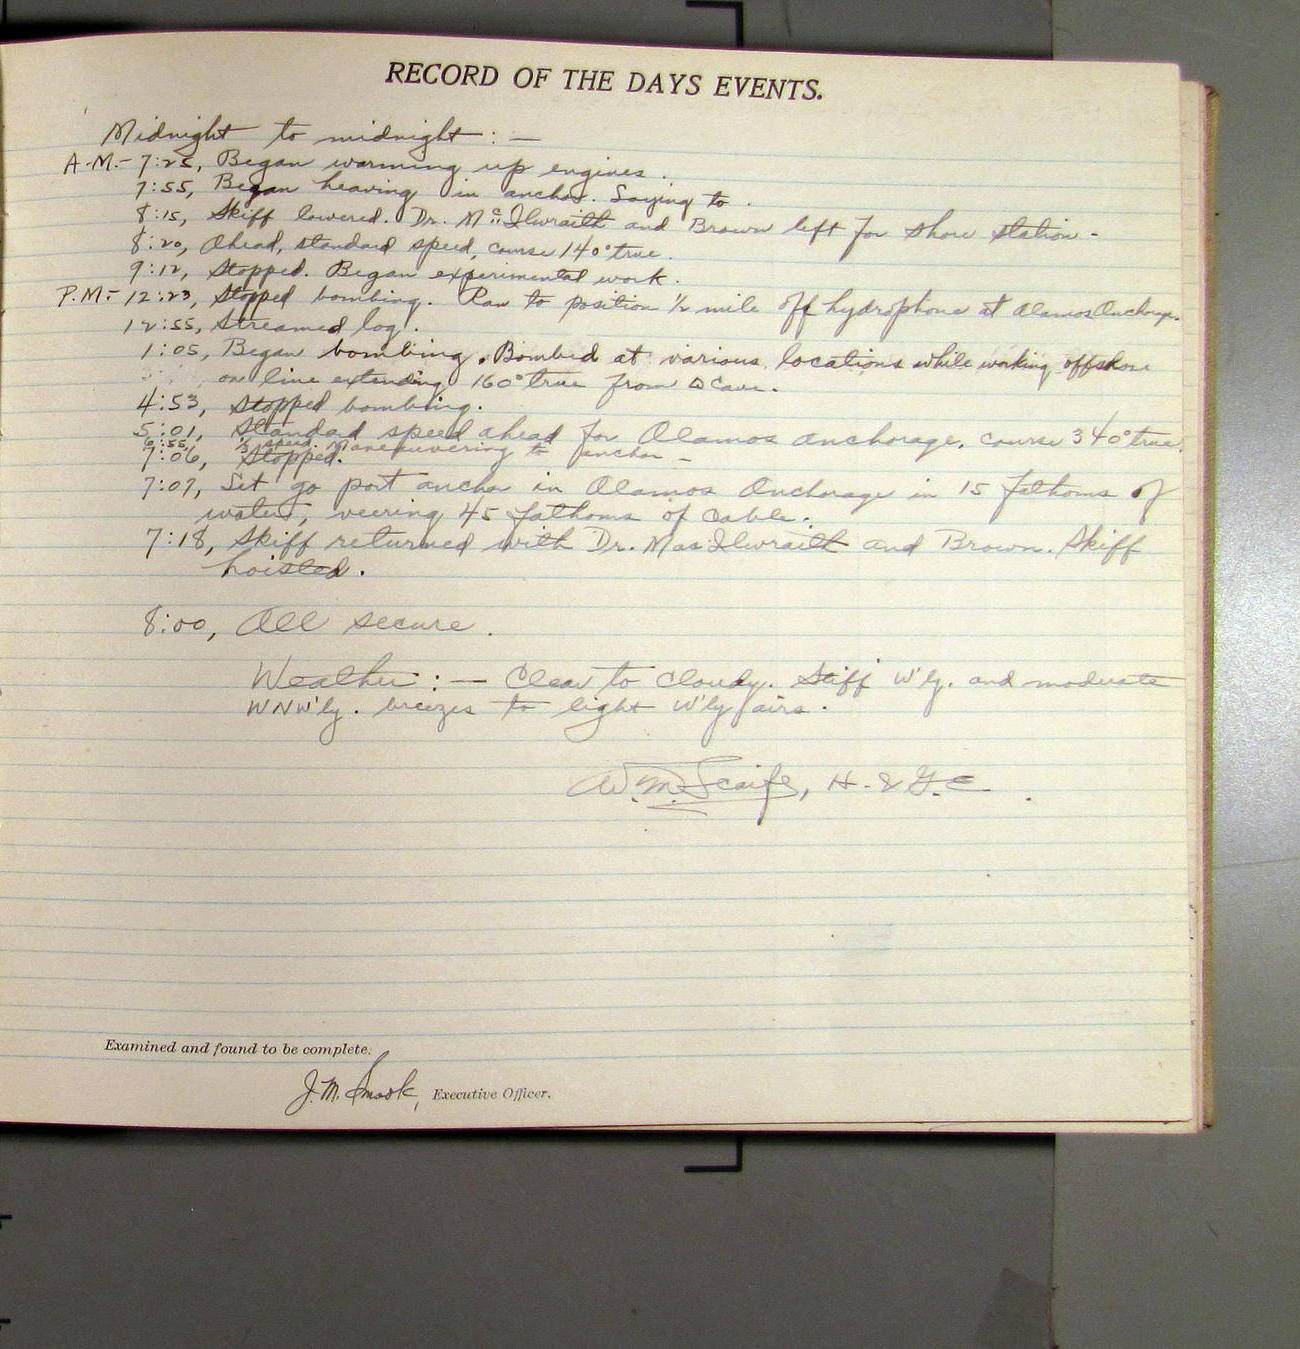 RECORD OF THE DAYS EVENTS.
Midnight to midnight : —
A.M.- 7:25, Began warming up engines.
7:55, Began heaving in anchor. Laying to.
8:15, Skiff lowered. Dr. McIlwraith and Brown left for shore station -
8:20, Ahead, standard speed, course 140° true.
9:12, Stopped. Began experimental work.
P.M:- 12:23, Stopped bombing. Ran to position 1/2 mile off hydrophone at Alamos Anchorage.
12:55, Streamed log.
1:05, Began bombing. Bombed at various locations while working offshore
on line extending 160° true from Δ Cave.
4:53, Stopped bombing.
5:01, Standard speed ahead for Alamos Anchorage, course 340° true.
6:55, 1/3 speed. Maneuvering to anchor -
7:06, Stopped.
7:07, Let go port anchor in Alamos Anchorage in 15 fathoms of
water, veering 45 fathoms of cable.
7:18, Skiff returned with Dr. MacIlwraith and Brown. Skiff
hoisted.
8:00, All secure.
Weather : — Clear to cloudy. Stiff W'ly. and moderate
WNW'ly. breezes to light W'ly airs.
W.M. Scaife, H. & G. E.
Examined and found to be complete.
J.M. Smook, Executive Officer.